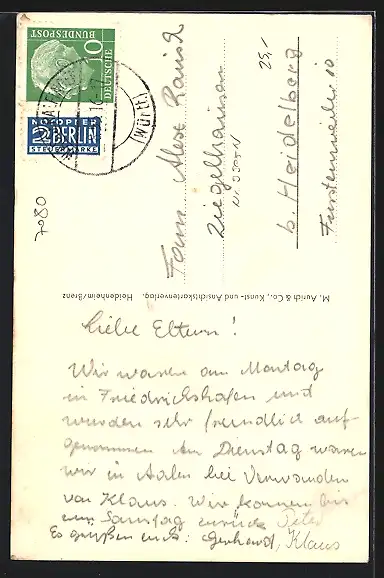 DEUTSCHE
BUNDESPOST
10
NOTOPFER
2 BERLIN
STEUERMARKE
(WÜRTT)
7080
Fam. Alex Rausch
Ziegelhausen
b. Heidelberg
Fürstenweiler 10
25,-
M. Aurich & Co., Kunst- und Ansichtskartenverlag, Heidenheim/Brenz
Liebe Eltern!
Wir waren am Montag
in Friedrichshafen und
wurden sehr freundlich auf-
genommen. Am Dienstag waren
wir in Aalen bei Verwandten
von Klaus. Wir kommen bis
zum Samstag zurück. Peter
Es grüßen euch: Gerhard, Klaus